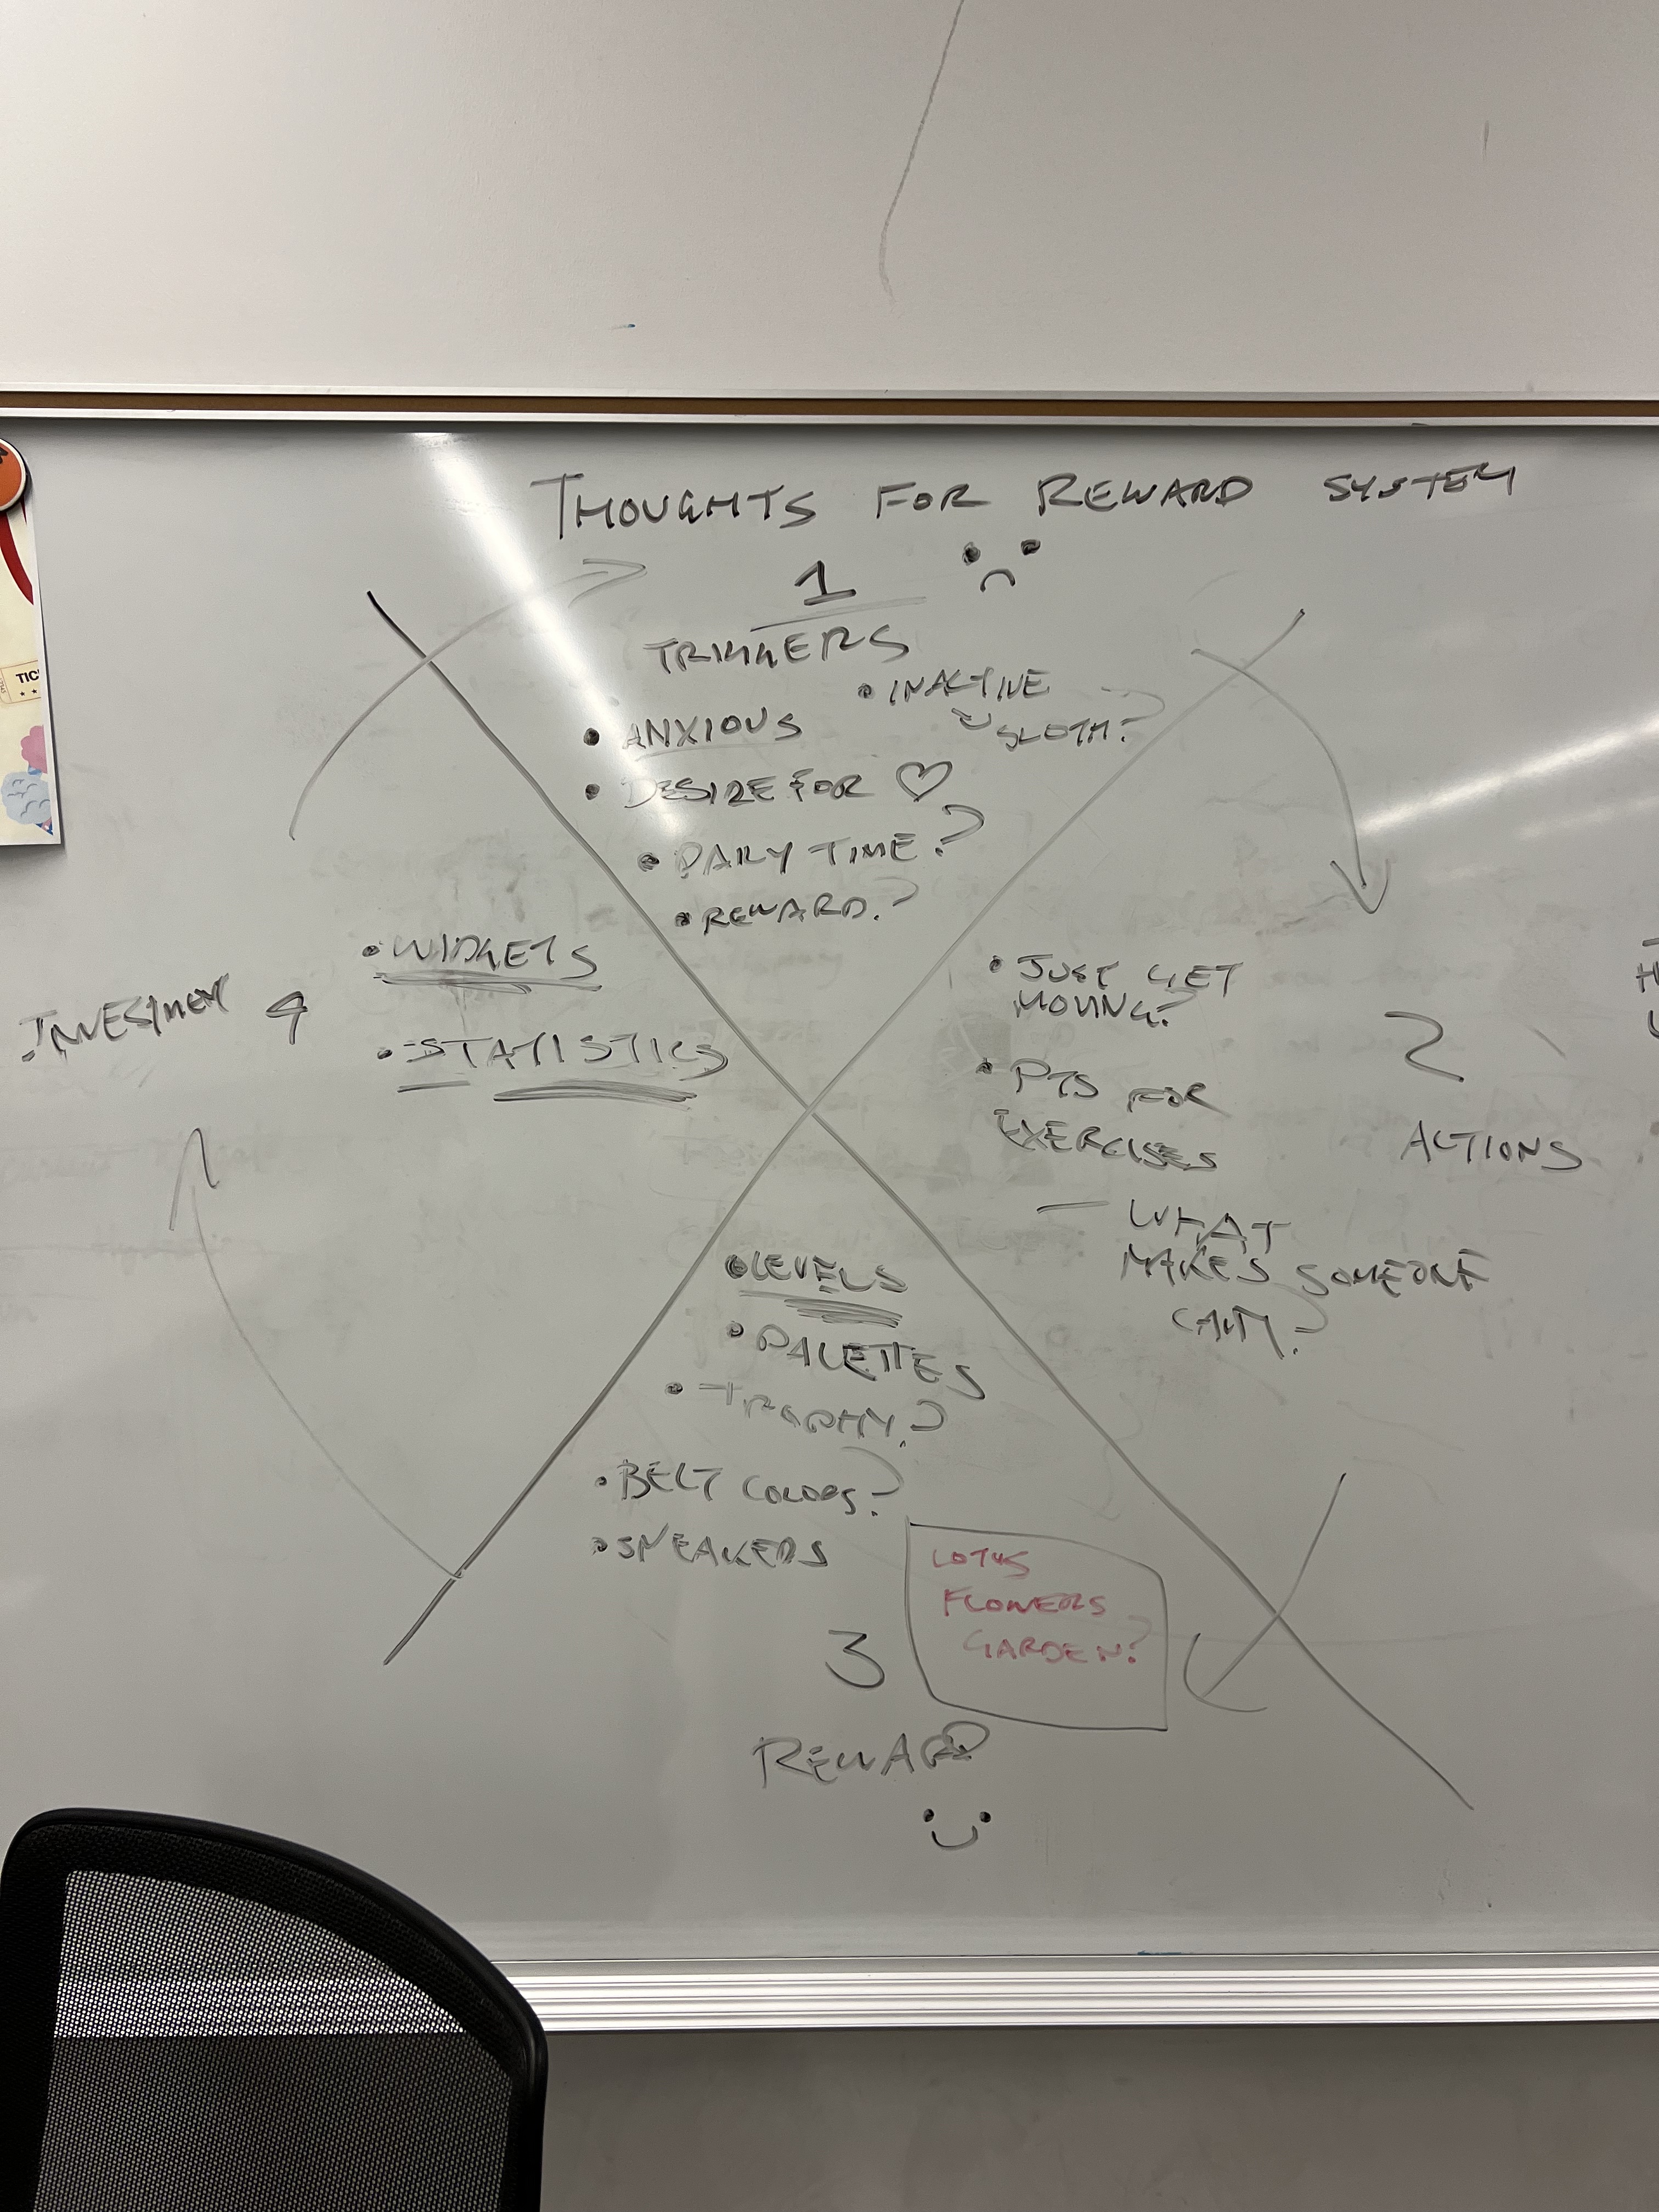 THOUGHTS FOR REWARD SYSTEM
1
TRIGGERS
• INACTIVE
~ SLOTH?
• ANXIOUS
• DESIRE FOR ♡
• DAILY TIME?
• REWARD?
• JUST GET
MOVING?
• PTS FOR
EXERCISES
— WHAT
MAKES SOMEONE
CALM?
2
ACTIONS
• LEVELS
• PALETTES
• TROPHY?
• BELT COLORS?
• SNEAKERS
LOTUS
FLOWERS
GARDEN?
3
REWARD
• WIDGETS
• STATISTICS
INVESTMENT 4
TIC